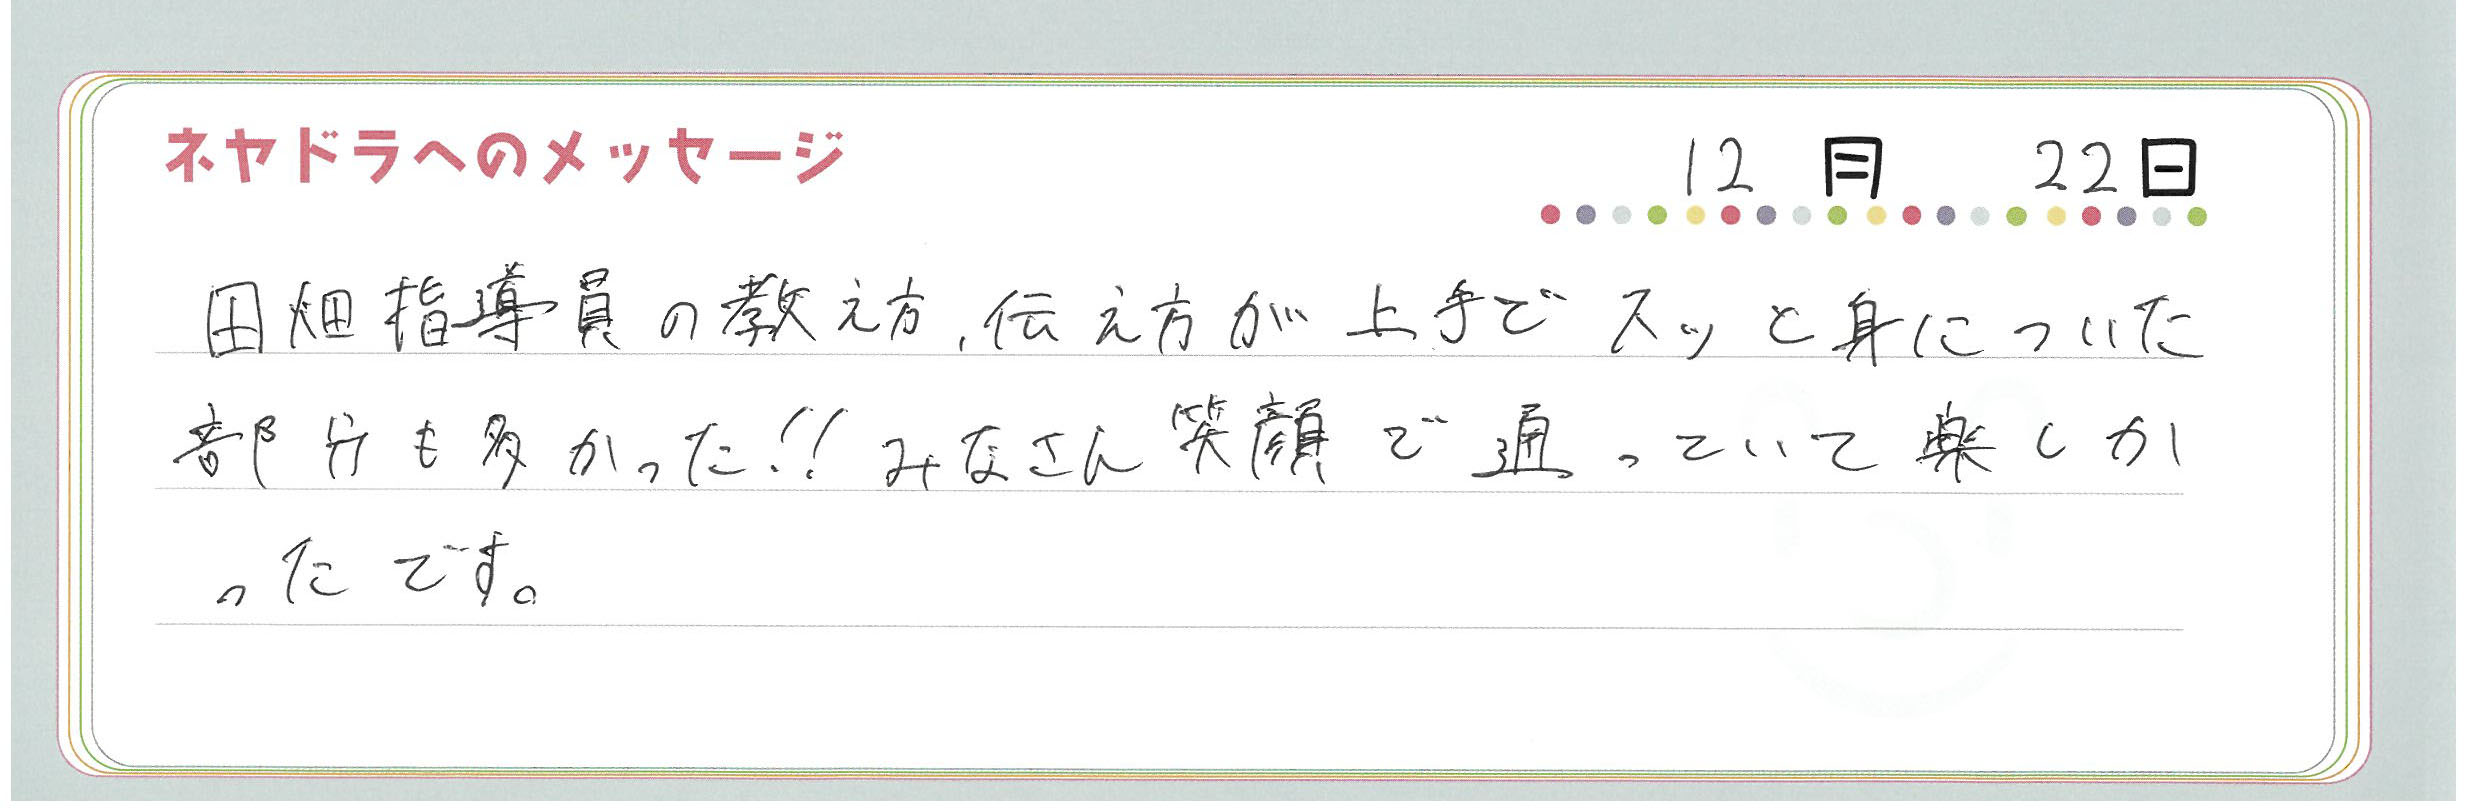 ネヤドラへのメッセージ
12月 22日
田畑指導員の教え方、伝え方が上手でスッと身についた
部分も多かった!!みなさん笑顔で通っていて楽しか
ったです。